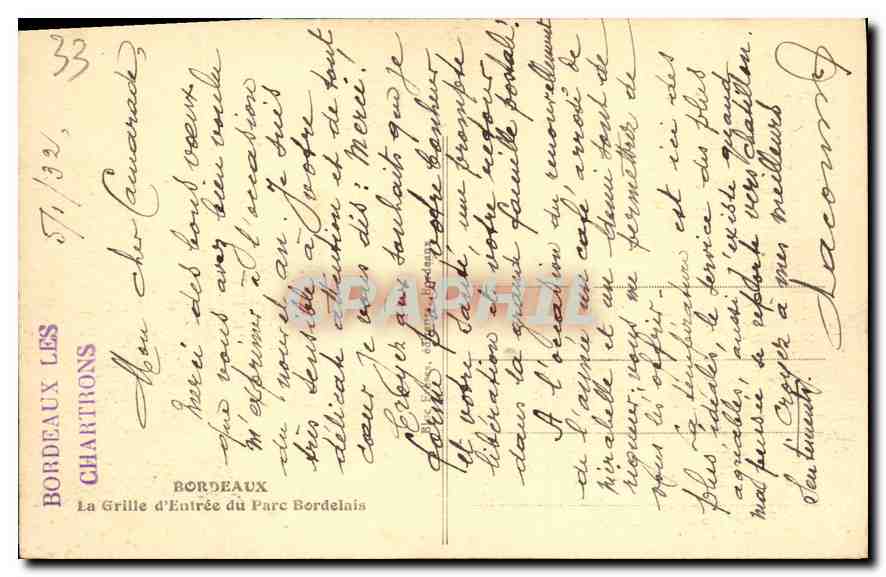 33
BORDEAUX LES
CHARTRONS
5/1/32,
BORDEAUX
La Grille d'Entrée du Parc Bordelais
CPAPHIL
Mon cher Camarade,
Merci des bons vœux
que vous avez bien voulu
m'exprimer à l'occasion
du nouvel an. Je suis
très sensible à votre
délicate attention et de tout
cœur je vous dis : Merci !
Croyez aux souhaits que je
forme pour votre bonheur
et votre santé, une prompte
libération et votre retour
dans la grande famille postale !
A l'occasion du renouvellement
de l'année un café arrosé de
mirabelle et un demi sont de
rigueur, vous me permettrez de
vous les offrir.
La température est ici des
plus idéales, le service des plus
agréables, aussi j'existe quand
ma pensée se reporte vers Chatillon.
Croyez à mes meilleurs
Sentiments.
Lacoume